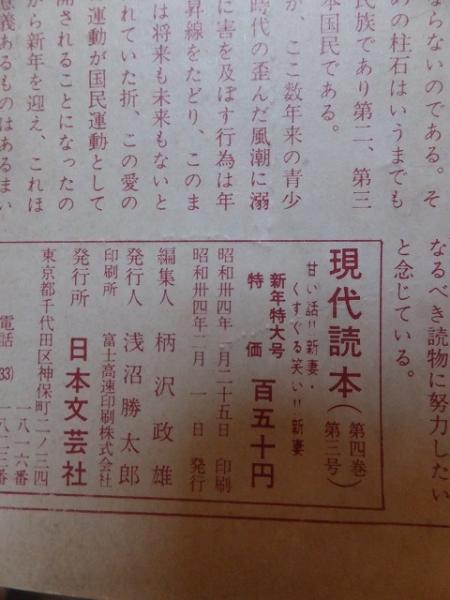 らないのである。そ
めの柱石はいうまでも
民族であり第二、第三
本国民である。
が、ここ数年来の青少
時代の歪んだ風潮に溺
に害を及ぼす行為は年
昇線をたどり、このま
は将来も未来もないと
れていた折、この愛の
運動が国民運動として
開されることになったの
から新年を迎え、これほ
意義あるものはあるまい
なるべき読物に努力したい
と念じている。
現代読本(第四巻 第三号)
甘い話!!新妻・
くすぐる笑い!!新妻
新年特大号
特価 百五十円
昭和卅四年一月二十五日 印刷
昭和卅四年二月 一日 発行
編集人 柄沢政雄
発行人 浅沼勝太郎
印刷所 富士高速印刷株式会社
発行所 日本文芸社
東京都千代田区神保町二ノ三四
電話 33) 一八一六番
一八二三番